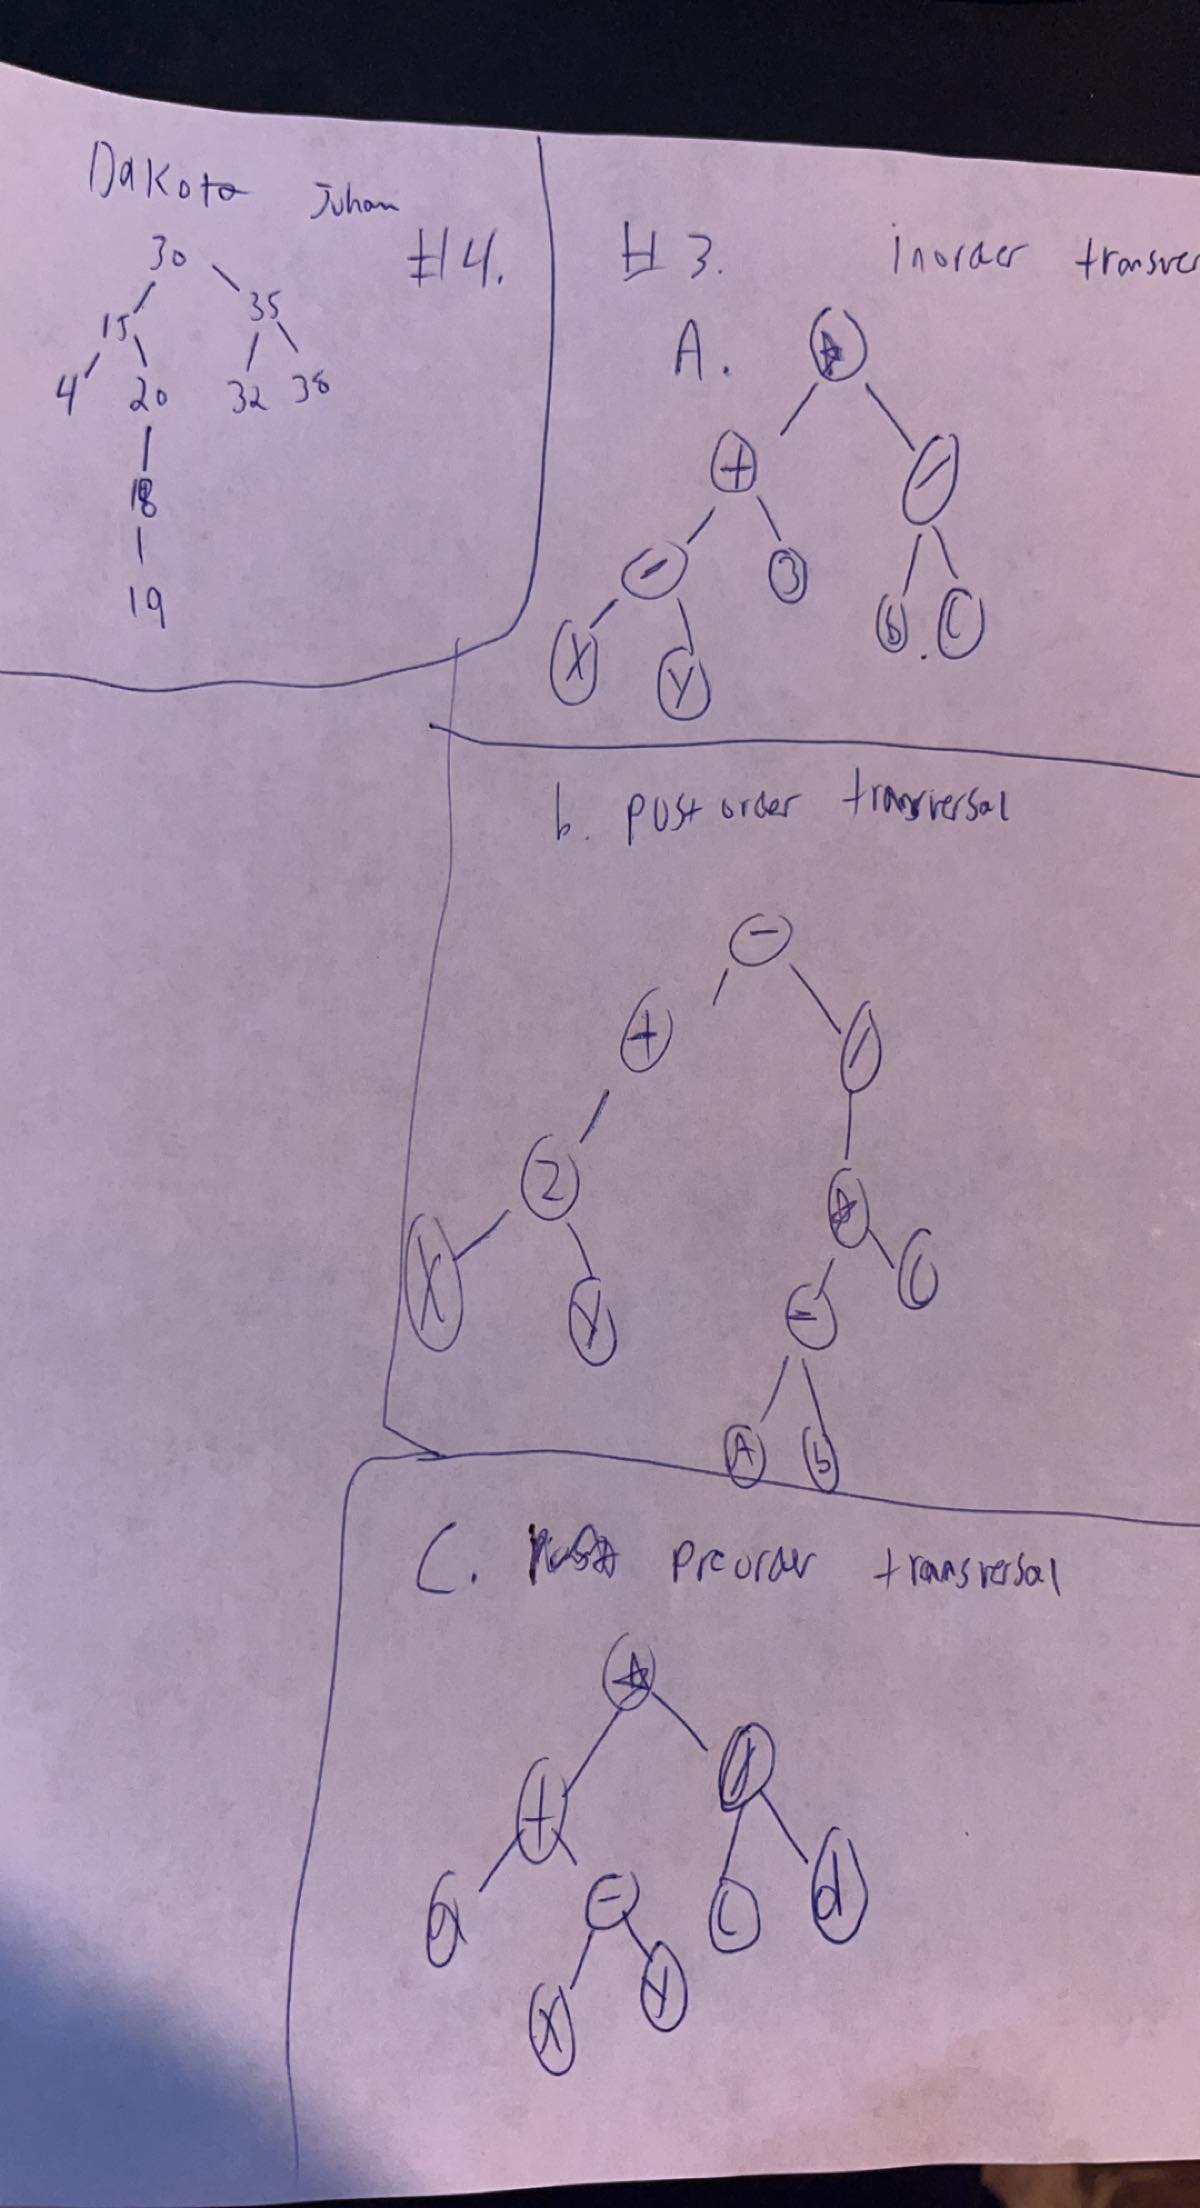 Dakota Juhan
#4.
30
15 35
4 20 32 38
18
19
#3. inorder transver
A. *
+ /
- 3 b c
X Y
b. post order transversal
-
+ /
2 *
X Y - C
A b
C. Preorder transversal
*
+ /
a - c d
X Y